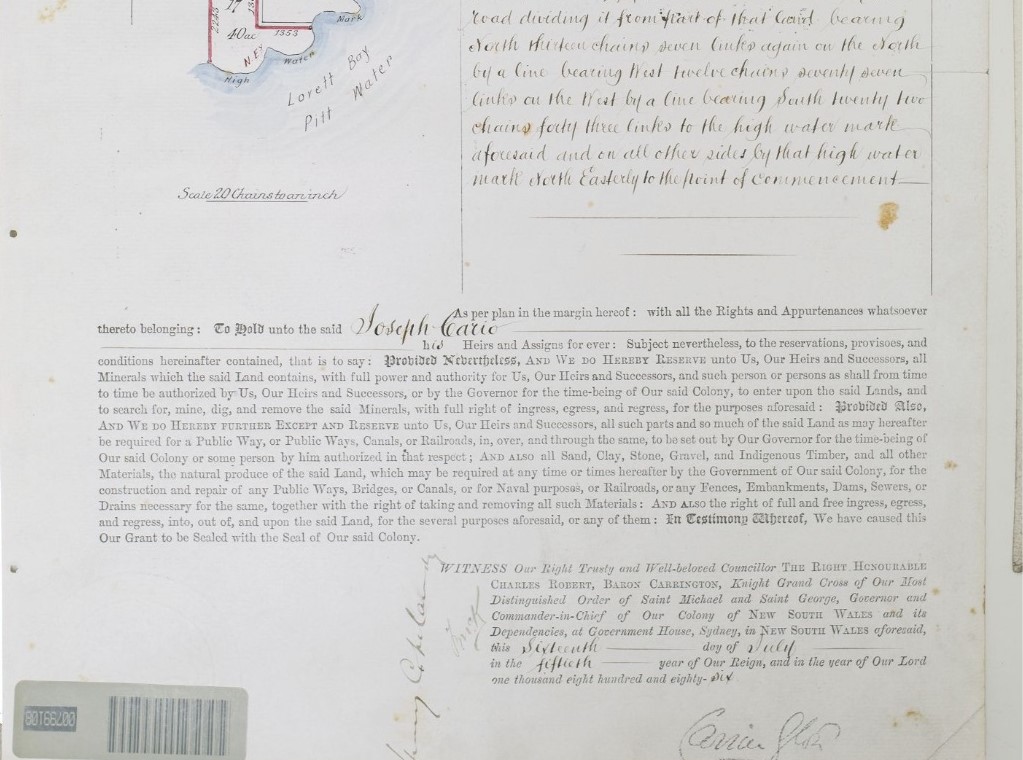 17
40ac
2243
1353
N.E.y
High
Water
Mark
Lovett Bay
Pitt Water
Scale 20 Chains to an inch
road dividing it from part of that land bearing
North thirteen chains seven links again on the North
by a line bearing West twelve chains seventy seven
links on the West by a line bearing South twenty two
chains forty three links to the high water mark
aforesaid and on all other sides by that high water
mark North Easterly to the point of commencement
As per plan in the margin hereof: with all the Rights and Appurtenances whatsoever
thereto belonging: To Hold unto the said Joseph Cario
his Heirs and Assigns for ever: Subject nevertheless, to the reservations, provisoes, and
conditions hereinafter contained, that is to say: Provided Nevertheless, AND WE DO HEREBY RESERVE unto Us, Our Heirs and Successors, all
Minerals which the said Land contains, with full power and authority for Us, Our Heirs and Successors, and such person or persons as shall from time
to time be authorized by Us, Our Heirs and Successors, or by the Governor for the time-being of Our said Colony, to enter upon the said Lands, and
to search for, mine, dig, and remove the said Minerals, with full right of ingress, egress, and regress, for the purposes aforesaid: Provided Also,
AND WE DO HEREBY FURTHER EXCEPT AND RESERVE unto Us, Our Heirs and Successors, all such parts and so much of the said Land as may hereafter
be required for a Public Way, or Public Ways, Canals, or Railroads, in, over, and through the same, to be set out by Our Governor for the time-being of
Our said Colony or some person by him authorized in that respect; AND ALSO all Sand, Clay, Stone, Gravel, and Indigenous Timber, and all other
Materials, the natural produce of the said Land, which may be required at any time or times hereafter by the Government of Our said Colony, for the
construction and repair of any Public Ways, Bridges, or Canals, or for Naval purposes, or Railroads, or any Fences, Embankments, Dams, Sewers, or
Drains necessary for the same, together with the right of taking and removing all such Materials: AND ALSO the right of full and free ingress, egress,
and regress, into, out of, and upon the said Land, for the several purposes aforesaid, or any of them: In Testimony Whereof, We have caused this
Our Grant to be Sealed with the Seal of Our said Colony.
WITNESS Our Right Trusty and Well-beloved Councillor THE RIGHT HONOURABLE
CHARLES ROBERT, BARON CARRINGTON, Knight Grand Cross of Our Most
Distinguished Order of Saint Michael and Saint George, Governor and
Commander-in-Chief of Our Colony of NEW SOUTH WALES and its
Dependencies, at Government House, Sydney, in NEW SOUTH WALES aforesaid,
this Sixteenth day of July
in the fiftieth year of Our Reign, and in the year of Our Lord
one thousand eight hundred and eighty-six
Copeland
00799100